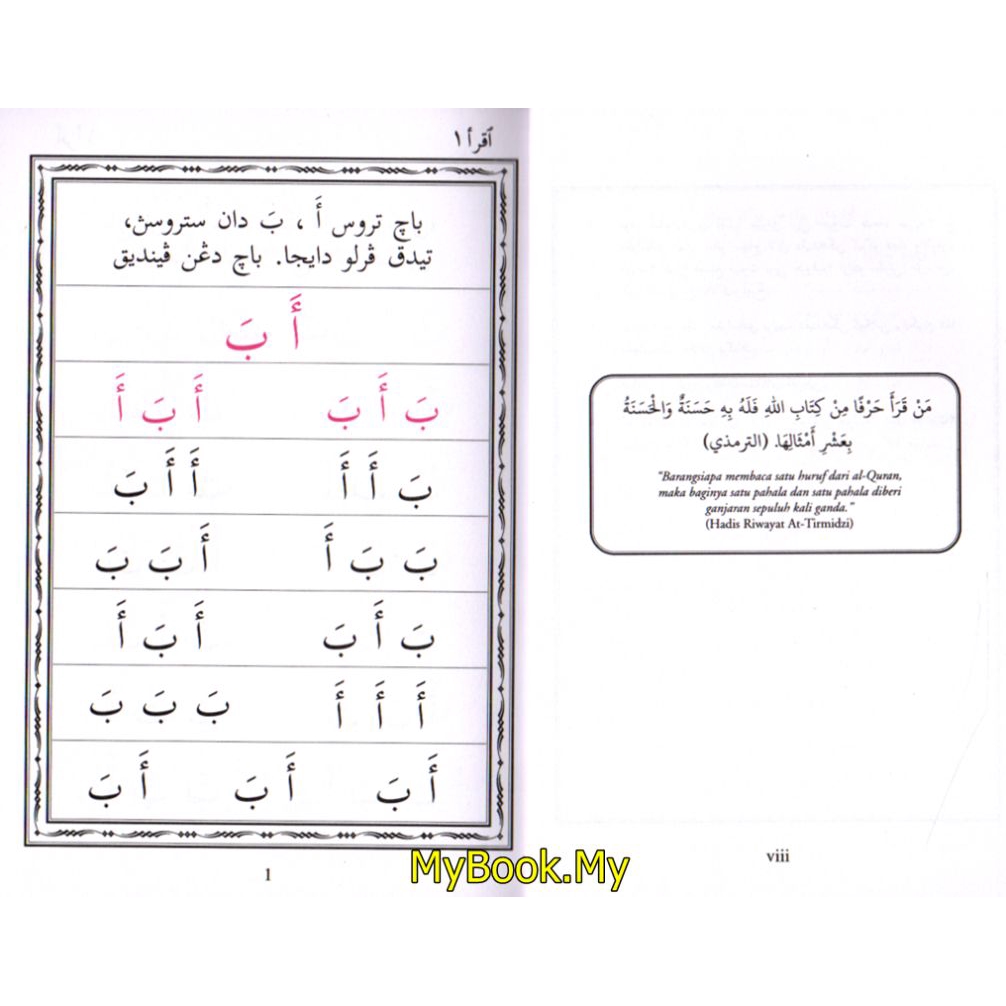 مَنْ قَرَأَ حَرْفًا مِنْ كِتَابِ اللهِ فَلَهُ بِهِ حَسَنَةٌ وَالْحَسَنَةُ
بِعَشْرِ أَمْثَالِهَا. (الترمذي)
"Barangsiapa membaca satu huruf dari al-Quran,
maka baginya satu pahala dan satu pahala diberi
ganjaran sepuluh kali ganda."
(Hadis Riwayat At-Tirmidzi)
viii
ٱقرأ ١
باچ تروس أَ ، بَ دان ستروسڽ،
تيدق ڤرلو دايجا. باچ دڠن ڤينديق
أَ بَ
بَ أَ بَ أَ بَ أَ
بَ أَ أَ أَ أَ بَ
بَ بَ أَ أَ بَ بَ
بَ أَ بَ أَ بَ أَ
أَ أَ أَ بَ بَ بَ
أَ بَ أَ بَ أَ بَ
1
MyBook.My